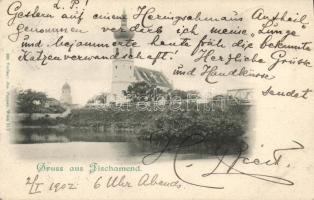 L. P.!
Gestern auf einem Heringsschmaus Antheil
genommen verdirb ich meine Lunge
und bejammerte heute früh die bekannte
Katzenverwandschaft. Herzliche Grüsse
und Handküsse
sendet
Gruss aus Fischamend.
2/I 1902 6 Uhr Abends.